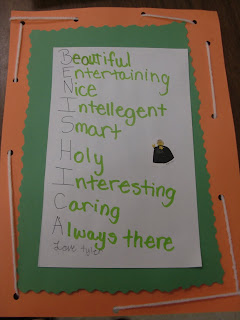 Beautiful
Entertaining
Nice
Intellegent
Smart
Holy
Interesting
Caring
Always there
Love tyler